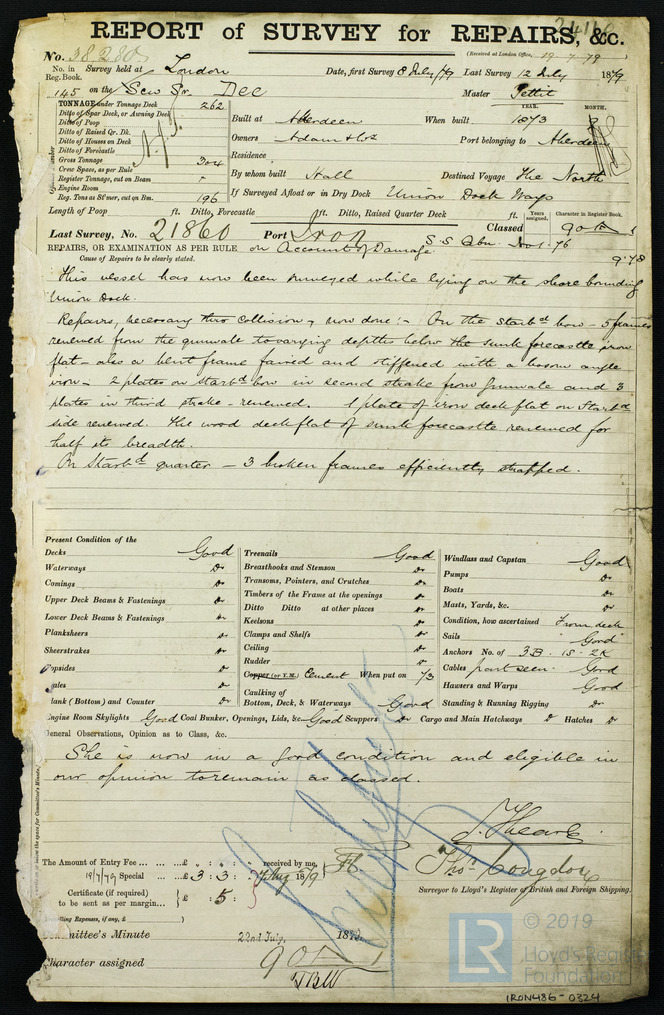 24116
REPORT of SURVEY for REPAIRS, &c.
(Received at London Office, 19.7.79
No. 38280
No. in Reg. Book. Survey held at London Date, first Survey 8 July/79 Last Survey 12 July 1879
145 on the Scw Sr. Dee Master Pettit
TONNAGE under Tonnage Deck 262
Ditto of Spar Deck, or Awning Deck
Ditto of Poop
Ditto of Raised Qr. Dk.
Ditto of Houses on Deck
Ditto of Forecastle
Gross Tonnage 304
Crew Space, as per Rule
Register Tonnage, cut on Beam
Engine Room
Reg. Tons as St'mer, cut on Bm. 196
YEAR. MONTH.
Built at Aberdeen When built 1873 8
Owners Adam & Co Port belonging to Aberdeen
Residence
By whom built Hall Destined Voyage The North
If Surveyed Afloat or in Dry Dock Union Dock Ways
Length of Poop ft. Ditto, Forecastle ft. Ditto, Raised Quarter Deck ft.
Years assigned. Character in Register Book.
Last Survey, No. 21860 Port Iron Classed 90
S.S Abn. No 1. 76
9.78
REPAIRS, OR EXAMINATION AS PER RULE on Account of Damage
Cause of Repairs to be clearly stated.
This vessel has now been surveyed while lying on the shore bounding
Union Dock.
Repairs, necessary thro collision, now done:- On the starbd bow - 5 frames
renewed from the gunwale to varying depths below the sunk forecastle iron
flat - also a bent frame faired and stiffened with a bosom angle
iron - 2 plates on starbd bow in second strake from gunwale and 3
plates in third strake - renewed. 1 plate of iron deck flat on Starbd
side renewed. The wood deck flat of sunk forecastle renewed for
half its breadth.
On Starbd quarter - 3 broken frames efficiently strapped.
Present Condition of the
Decks Good
Waterways Do
Comings Do
Upper Deck Beams & Fastenings Do
Lower Deck Beams & Fastenings Do
Planksheers Do
Sheerstrakes Do
Topsides Do
Wales Do
Plank (Bottom) and Counter Do
Treenails Good
Breasthooks and Stemson Do
Transoms, Pointers, and Crutches Do
Timbers of the Frame at the openings Do
Ditto Ditto at other places Do
Keelsons Do
Clamps and Shelfs Do
Ceiling Do
Rudder Do
Copper (or Y.M.) Cement When put on /73
Caulking of
Bottom, Deck, & Waterways Good
Windlass and Capstan Good
Pumps Do
Boats Do
Masts, Yards, &c. Do
Condition, how ascertained From deck
Sails Good
Anchors No. of 3B. 1S. 2K
Cables part seen. Good
Hawsers and Warps Good
Standing & Running Rigging Do
Engine Room Skylights Good Coal Bunker, Openings, Lids, &c. Good Scuppers Do Cargo and Main Hatchways Do Hatches Do
General Observations, Opinion as to Class, &c.
She is now in a good condition and eligible in
our opinion to remain as classed.
The Amount of Entry Fee ... £ : : received by me,
19/7/79 Special ... £ 3 : 3 : 1879
Certificate (if required) to be sent as per margin... £ : 5 :
Travelling Expenses, if any, £
Thos. Congdon
Surveyor to Lloyd's Register of British and Foreign Shipping.
Committee's Minute 22nd July, 187
Character assigned 90
© 2019
LR Lloyd's Register
Foundation
IRON486-0324